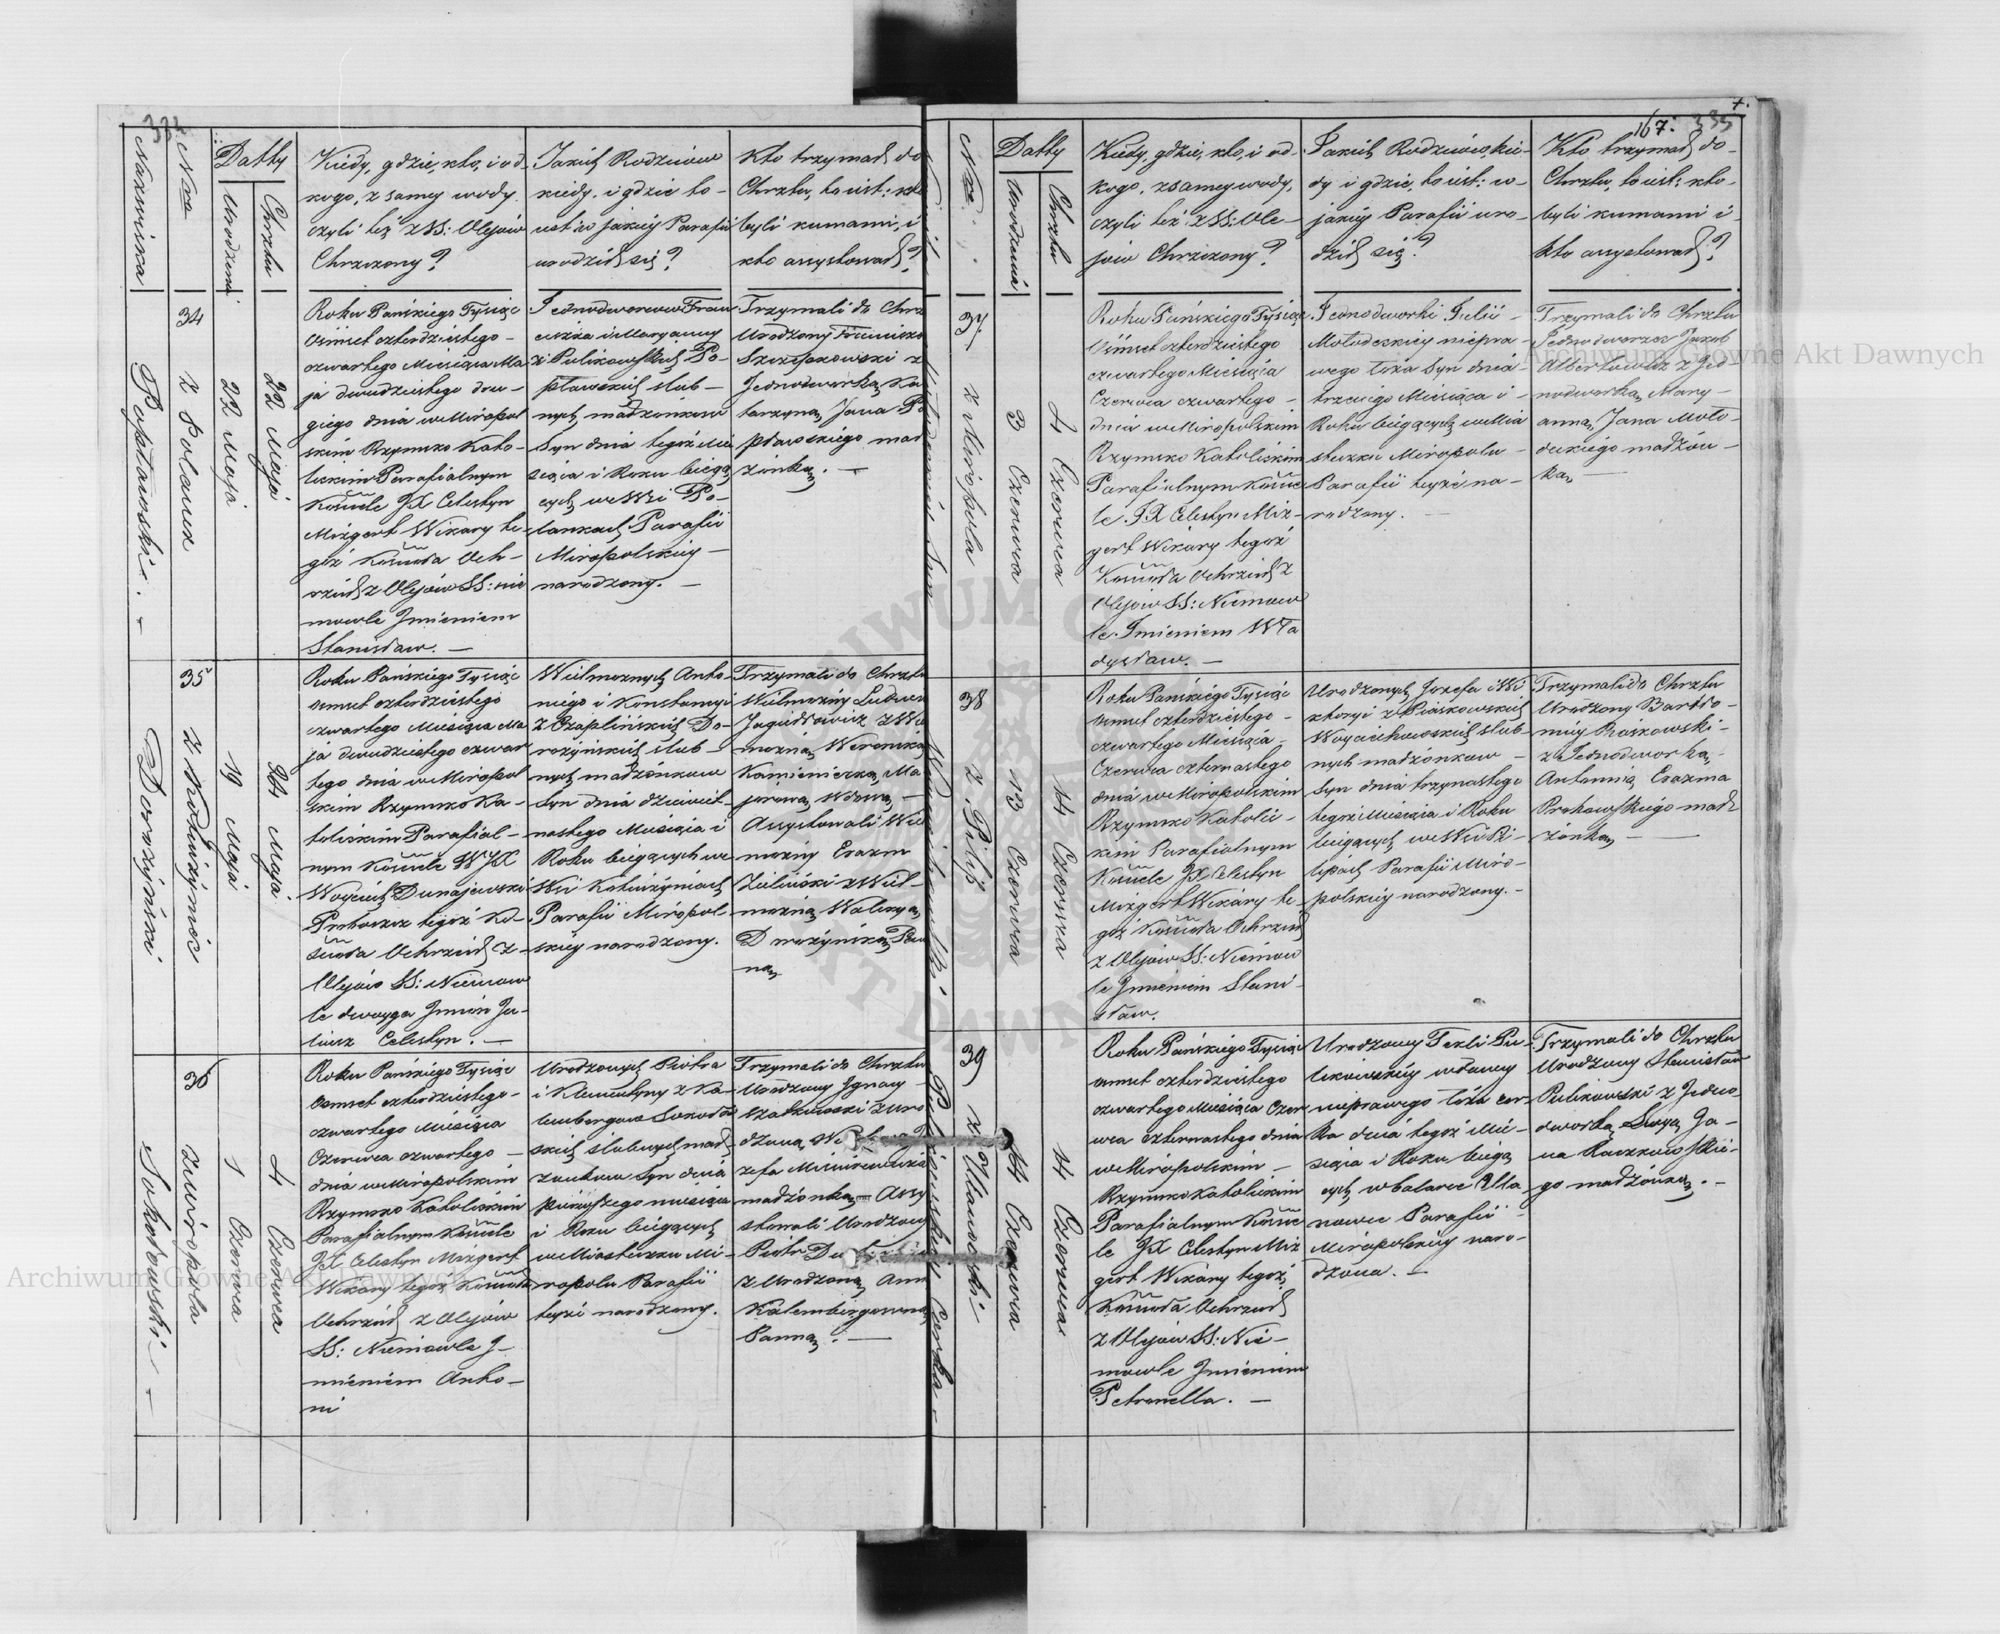 Nazwiska
Nra
Datty
Urodzenia
Chrztu
Kiedy, gdzie, kto, i od
kogo, z samey wody
czyli też z SS: Olejów
Chrzczony?
Jakich Rodziców
kiedy i gdzie to
iest w jakiéy Parafii
urodził się?
Kto trzymał do
Chrztu, to iest: kto
byli kumami, i
kto assystował?
34
Popławski. -
z Polanek
22 Maja
22 Maja
Roku Pańskiego Tysiąc
Ośmset czterdziestego -
czwartego Miesiąca Ma
ja dwudziestego dru -
giego dnia w Miropol
skim Rzymsko Kato -
lickim Parafialnym
Kościele JX Celestyn
Mizgert Wikary te -
goż Kościoła Och -
rzcił z Olejów SS: nie
mowle Jmieniem
Stanisław. —
Jednodworców Fran
ciszka i Maryanny
z Pulikowskich Po -
pławskich ślub -
nych małżonków
Syn dnia tegoż Mie
siąca i Roku bieżą
cych we Wsi Po -
lankach Parafii
Miropolskiéy -
narodzony. —
Trzymali do Chrz
Urodzony Franciszek
Szczepkowski z
Jednodworką Ka
tarzyną Jana Po
pławskiego mał
żonką. —
35
Dorożyński
19 Maja
24 Maja
Roku Pańskiego Tysiąc
osmset czterdziestego
czwartego Miesiąca Ma
ja dwudziestego czwar
tego dnia w Miropol
skim Rzymsko Ka -
tolickim Parafial -
nym Kościele WJX
Woyciech Dunajewski
Proboszcz tegoż Ko -
ścioła Ochrzcił z -
Olejów SS: Niemow
le dwoyga Jmion Ju -
liusz Celestyn. —
Wielmożnych Anto -
niego i Konstancyi
z Czaplińskich Do -
rożyńskich ślub -
nych małżonków
Syn dnia dziewięt -
nastego Miesiąca i
Roku bieżących we
Parafii Miropol -
skiéy narodzony.
Trzymali do Chrztu
Wielmożny Ludwik
możną Weroniką
Kamieniecką Ma
jorową Wdową -
Assystowali Wiel
możny Erazm
Zieliński z Wiel -
możną Waleryą
Dorożyńską Pan
ną
36
Sokołowski —
z Miropola
1 Czerwca
4 Czerwca
Roku Pańskiego Tysiąc
Osmset czterdziestego -
czwartego Miesiąca
Czerwca czwartego -
dnia w Miropolskim
Rzymsko Katolickim
Parafialnym Kościele
JX Celestyn Mizgert
Wikary tegoż Kościoła
Ochrzcił z Olejów
SS: Niemowle J -
mieniem Anto -
ni
Urodzonych Piotra
i Klementyny z Ka -
lembergow Sokołow
skich ślubnych mał -
żonków Syn dnia
pierwszego miesiąca
i Roku bieżących
w Miasteczku Mi -
ropolu Parafii
teyże narodzony.
Trzymali do Chrztu
Urodzony Jgnacy -
małżonką — Assy
stowali Urodzony
Piotr
z Urodzoną Anną
Panną. —
167.
Nra
Datty
Urodzenia
Chrztu
Kiedy, gdzie, kto, i od -
kogo, z samey wody,
czyli też z SS: Ole -
jów Chrzczony?
Jakich Rodziców, kie -
dy i gdzie, to iest: w -
jakiéy Parafii uro -
dził się?
Kto trzymał do -
Chrztu, to iest: kto -
byli kumami i -
kto assystował?
37.
z Miropola
3 Czerwca
4 Czerwca
Roku Pańskiego Tysiąc
Ośmset czterdziestego
czwartego Miesiąca
Czerwca czwartego -
dnia w Miropolskim
Rzymsko Katolickim
Parafialnym Kościele
le JX Celestyn Miz -
gert Wikary tegoż
Kościoła Ochrzcił z
Olejów SS: Niemow
le Jmieniem Wła
dysław. —
Jednodworki Julii -
Mołodeckiéy niepra -
wego łoża Syn dnia -
trzeciego Miesiąca i -
Roku bieżących w Mia
steczku Miropolu -
Parafii teyże na -
rodzony. —
Trzymali do Chrztu
Jednodworzec Jakub
Albertowicz z Jed -
nodworką Mary -
anną, Jana Moło -
deckiego małżon -
ką —
38
Woyciechowski
z Pilip
13 Czerwca
14 Czerwca
Roku Pańskiego Tysiąc
osmset czterdziestego -
czwartego Miesiąca -
Czerwca czternastego
dnia w Miropolskim
Rzymsko Katolic -
kim Parafialnym
Kościele JX Celestyn
Mizgert Wikary te -
goż Kościoła Ochrzcił
z Olejów SS: Niemow
le Jmieniem Stani -
sław.
Urodzonych Jozefa i Wi
ktoryi z Piaskowskich
Woyciechowskich ślub -
nych małżonków -
Syn dnia trzynastego
tegoż Miesiąca i Roku
bieżących we Wsi Pi -
lipach Parafii Miro -
polskiéy narodzony. -
Trzymali do Chrztu
Urodzony Bartło -
miéy Piaskowski -
z Jednodworką -
Antonina, Erazma
małż
żonką —
39
14 Czerwca
14 Czerwca
Roku Pańskiego Tysiąc
osmset czterdziestego
czwartego Miesiąca Czer
wca czternastego dnia
w Miropolskim -
Rzymsko Katolickim
Parafialnym Kościele
le JX Celestyn Miz
gert Wikary tegoż
Kościoła Ochrzcił
z Olejów SS: Nie -
mowle Jmieniem
Petronella. —
Urodzoney Tekli Pu -
likowskiéy wdowy
nieprawego łoża cor -
ka dnia tegoż Mie -
siąca i Roku bieżą
cych
Parafii -
Miropolskiéy naro -
dzona. —
Trzymali do Chrztu
Urodzony Stanisław
Pulikowski z Jedno -
dworką Ja -
na Raczkowskie -
go małżonką. —
Archiwum Główne Akt Dawnych
Archiwum Główne Akt Dawnych